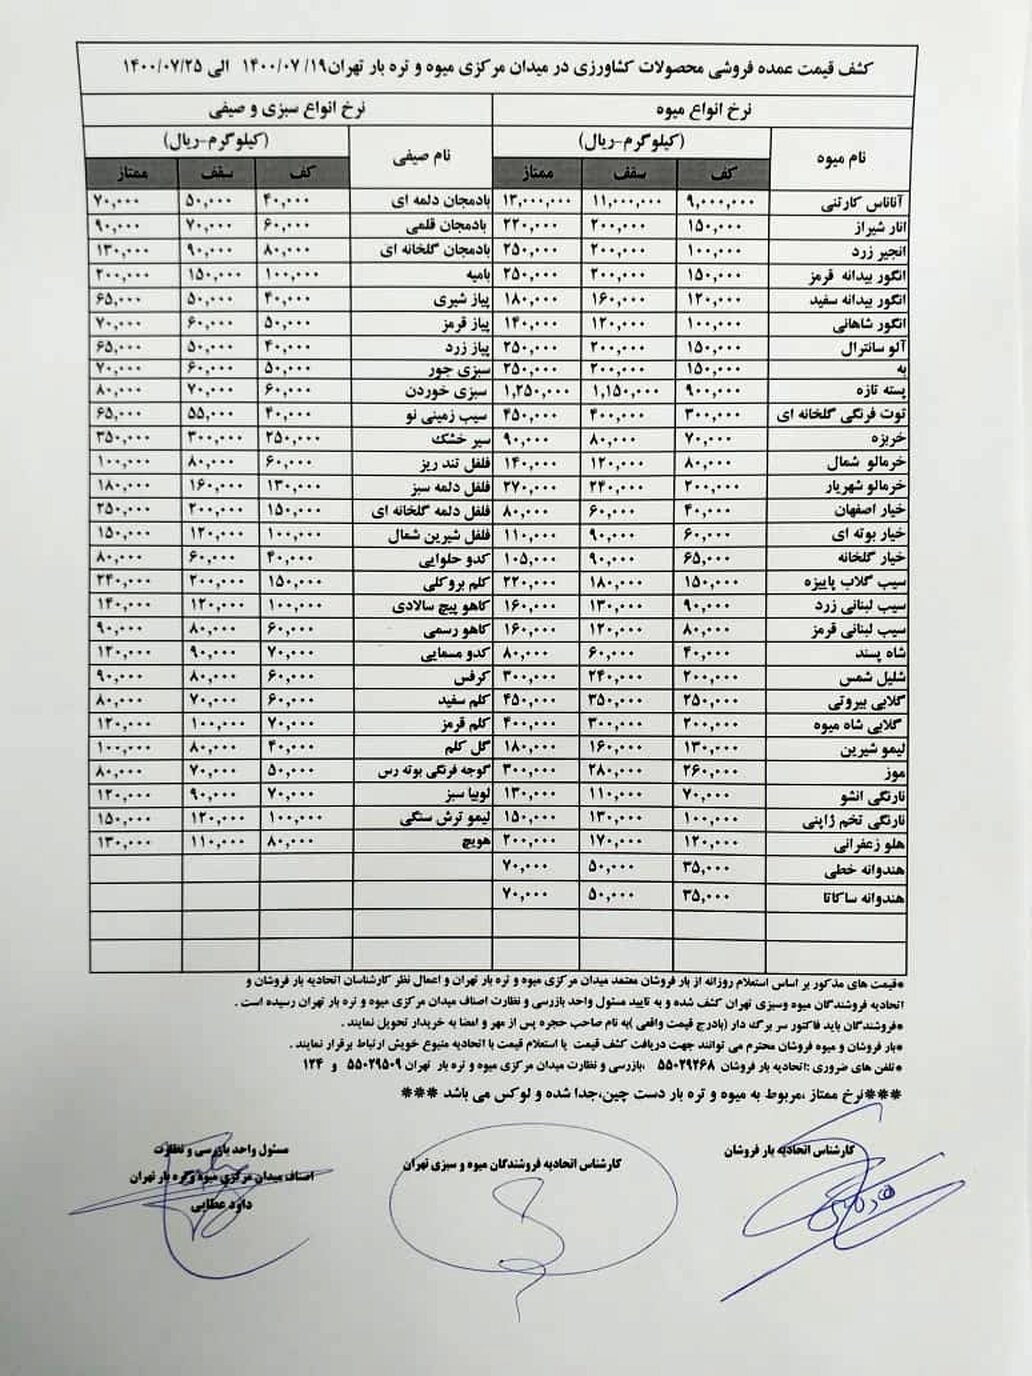 کشف قیمت عمده فروشی محصولات کشاورزی در میدان مرکزی میوه و تره بار تهران۱۹/ ۱۴۰۰/۰۷ الی ۱۴۰۰/۰۷/۲۵
نرخ انواع میوه نرخ انواع سبزی و صیفی
نام میوه (کیلوگرم-ریال) نام صیفی (کیلوگرم-ریال)
کف سقف ممتاز کف سقف ممتاز
آناناس کارتنی ۹,۰۰۰,۰۰۰ ۱۱,۰۰۰,۰۰۰ ۱۳,۰۰۰,۰۰۰ بادمجان دلمه ای ۴۰,۰۰۰ ۵۰,۰۰۰ ۷۰,۰۰۰
انار شیراز ۱۵۰,۰۰۰ ۲۰۰,۰۰۰ ۲۲۰,۰۰۰ بادمجان قلمی ۶۰,۰۰۰ ۷۰,۰۰۰ ۹۰,۰۰۰
انجیر زرد ۱۰۰,۰۰۰ ۲۰۰,۰۰۰ ۲۵۰,۰۰۰ بادمجان گلخانه ای ۸۰,۰۰۰ ۹۰,۰۰۰ ۱۳۰,۰۰۰
انگور بیدانه قرمز ۱۵۰,۰۰۰ ۲۰۰,۰۰۰ ۲۵۰,۰۰۰ بامیه ۱۰۰,۰۰۰ ۱۵۰,۰۰۰ ۲۰۰,۰۰۰
انگور بیدانه سفید ۱۲۰,۰۰۰ ۱۶۰,۰۰۰ ۱۸۰,۰۰۰ پیاز شیری ۴۰,۰۰۰ ۵۰,۰۰۰ ۶۵,۰۰۰
انگور شاهانی ۱۰۰,۰۰۰ ۱۲۰,۰۰۰ ۱۴۰,۰۰۰ پیاز قرمز ۵۰,۰۰۰ ۶۰,۰۰۰ ۷۰,۰۰۰
آلو سانترال ۱۵۰,۰۰۰ ۲۰۰,۰۰۰ ۲۵۰,۰۰۰ پیاز زرد ۴۰,۰۰۰ ۵۰,۰۰۰ ۶۵,۰۰۰
به ۱۵۰,۰۰۰ ۲۰۰,۰۰۰ ۲۵۰,۰۰۰ سبزی جور ۵۰,۰۰۰ ۶۰,۰۰۰ ۷۰,۰۰۰
پسته تازه ۹۰۰,۰۰۰ ۱,۱۵۰,۰۰۰ ۱,۲۵۰,۰۰۰ سبزی خوردن ۶۰,۰۰۰ ۷۰,۰۰۰ ۸۰,۰۰۰
توت فرنگی گلخانه ای ۳۰۰,۰۰۰ ۴۰۰,۰۰۰ ۴۵۰,۰۰۰ سیب زمینی نو ۴۰,۰۰۰ ۵۵,۰۰۰ ۶۵,۰۰۰
خربزه ۷۰,۰۰۰ ۸۰,۰۰۰ ۹۰,۰۰۰ سیر خشک ۲۵۰,۰۰۰ ۳۰۰,۰۰۰ ۳۵۰,۰۰۰
خرمالو شمال ۸۰,۰۰۰ ۱۲۰,۰۰۰ ۱۴۰,۰۰۰ فلفل تند ریز ۶۰,۰۰۰ ۸۰,۰۰۰ ۱۰۰,۰۰۰
خرمالو شهریار ۲۰۰,۰۰۰ ۲۴۰,۰۰۰ ۲۷۰,۰۰۰ فلفل دلمه سبز ۱۳۰,۰۰۰ ۱۶۰,۰۰۰ ۱۸۰,۰۰۰
خیار اصفهان ۴۰,۰۰۰ ۶۰,۰۰۰ ۸۰,۰۰۰ فلفل دلمه گلخانه ای ۱۵۰,۰۰۰ ۲۰۰,۰۰۰ ۲۵۰,۰۰۰
خیار بوته ای ۶۰,۰۰۰ ۹۰,۰۰۰ ۱۱۰,۰۰۰ فلفل شیرین شمال ۱۰۰,۰۰۰ ۱۲۰,۰۰۰ ۱۵۰,۰۰۰
خیار گلخانه ۶۵,۰۰۰ ۹۰,۰۰۰ ۱۰۵,۰۰۰ کدو حلوایی ۴۰,۰۰۰ ۶۰,۰۰۰ ۸۰,۰۰۰
سیب گلاب پاییزه ۱۵۰,۰۰۰ ۱۸۰,۰۰۰ ۲۲۰,۰۰۰ کلم بروکلی ۱۵۰,۰۰۰ ۲۰۰,۰۰۰ ۲۴۰,۰۰۰
سیب لبنانی زرد ۹۰,۰۰۰ ۱۳۰,۰۰۰ ۱۶۰,۰۰۰ کاهو پیچ سالادی ۱۰۰,۰۰۰ ۱۲۰,۰۰۰ ۱۴۰,۰۰۰
سیب لبنانی قرمز ۸۰,۰۰۰ ۱۲۰,۰۰۰ ۱۶۰,۰۰۰ کاهو رسمی ۶۰,۰۰۰ ۸۰,۰۰۰ ۹۰,۰۰۰
شاه پسند ۴۰,۰۰۰ ۶۰,۰۰۰ ۸۰,۰۰۰ کدو مسمایی ۷۰,۰۰۰ ۹۰,۰۰۰ ۱۲۰,۰۰۰
شلیل شمس ۲۰۰,۰۰۰ ۲۴۰,۰۰۰ ۳۰۰,۰۰۰ کرفس ۶۰,۰۰۰ ۸۰,۰۰۰ ۹۰,۰۰۰
گلابی بیروتی ۲۵۰,۰۰۰ ۳۵۰,۰۰۰ ۴۵۰,۰۰۰ کلم سفید ۶۰,۰۰۰ ۷۰,۰۰۰ ۸۰,۰۰۰
گلابی شاه میوه ۲۰۰,۰۰۰ ۳۰۰,۰۰۰ ۴۰۰,۰۰۰ کلم قرمز ۷۰,۰۰۰ ۱۰۰,۰۰۰ ۱۲۰,۰۰۰
لیمو شیرین ۱۳۰,۰۰۰ ۱۶۰,۰۰۰ ۱۸۰,۰۰۰ گل کلم ۴۰,۰۰۰ ۸۰,۰۰۰ ۱۰۰,۰۰۰
موز ۲۶۰,۰۰۰ ۲۸۰,۰۰۰ ۳۰۰,۰۰۰ گوجه فرنگی بوته رس ۵۰,۰۰۰ ۷۰,۰۰۰ ۸۰,۰۰۰
نارنگی انشو ۷۰,۰۰۰ ۱۱۰,۰۰۰ ۱۳۰,۰۰۰ لوبیا سبز ۷۰,۰۰۰ ۹۰,۰۰۰ ۱۲۰,۰۰۰
نارنگی تخم ژاپنی ۱۰۰,۰۰۰ ۱۳۰,۰۰۰ ۱۵۰,۰۰۰ لیمو ترش سنگی ۱۰۰,۰۰۰ ۱۲۰,۰۰۰ ۱۵۰,۰۰۰
هلو زعفرانی ۱۲۰,۰۰۰ ۱۷۰,۰۰۰ ۲۰۰,۰۰۰ هویج ۸۰,۰۰۰ ۱۱۰,۰۰۰ ۱۳۰,۰۰۰
هندوانه خطی ۳۵,۰۰۰ ۵۰,۰۰۰ ۷۰,۰۰۰
هندوانه ساکاتا ۳۵,۰۰۰ ۵۰,۰۰۰ ۷۰,۰۰۰
*قیمت های مذکور بر اساس استعلام روزانه از بار فروشان معتمد میدان مرکزی میوه و تره بار تهران و اعمال نظر کارشناسان اتحادیه بار فروشان و
اتحادیه فروشندگان میوه وسبزی تهران کشف شده و به تایید مسئول واحد بازرسی و نظارت اصناف میدان مرکزی میوه و تره بار تهران رسیده است .
*فروشندگان باید فاکتور سر برگ دار (بادرج قیمت واقعی )به نام صاحب حجره پس از مهر و امضا به خریدار تحویل نمایند .
*بار فروشان و میوه فروشان محترم می توانند جهت دریافت کشف قیمت یا استعلام قیمت با اتحادیه متبوع خویش ارتباط برقرار نمایند .
*تلفن های ضروری :اتحادیه بار فروشان ۵۵۰۲۹۲۶۸ ،بازرسی و نظارت میدان مرکزی میوه و تره بار تهران ۵۵۰۲۹۵۰۹ و ۱۲۴
***نرخ ممتاز ،مربوط به میوه و تره بار دست چین،جدا شده و لوکس می باشد ***
کارشناس اتحادیه بار فروشان
کارشناس اتحادیه فروشندگان میوه و سبزی تهران
مسئول واحد بازرسی و نظارت
اصناف میدان مرکزی میوه و تره بار تهران
داود عطایی